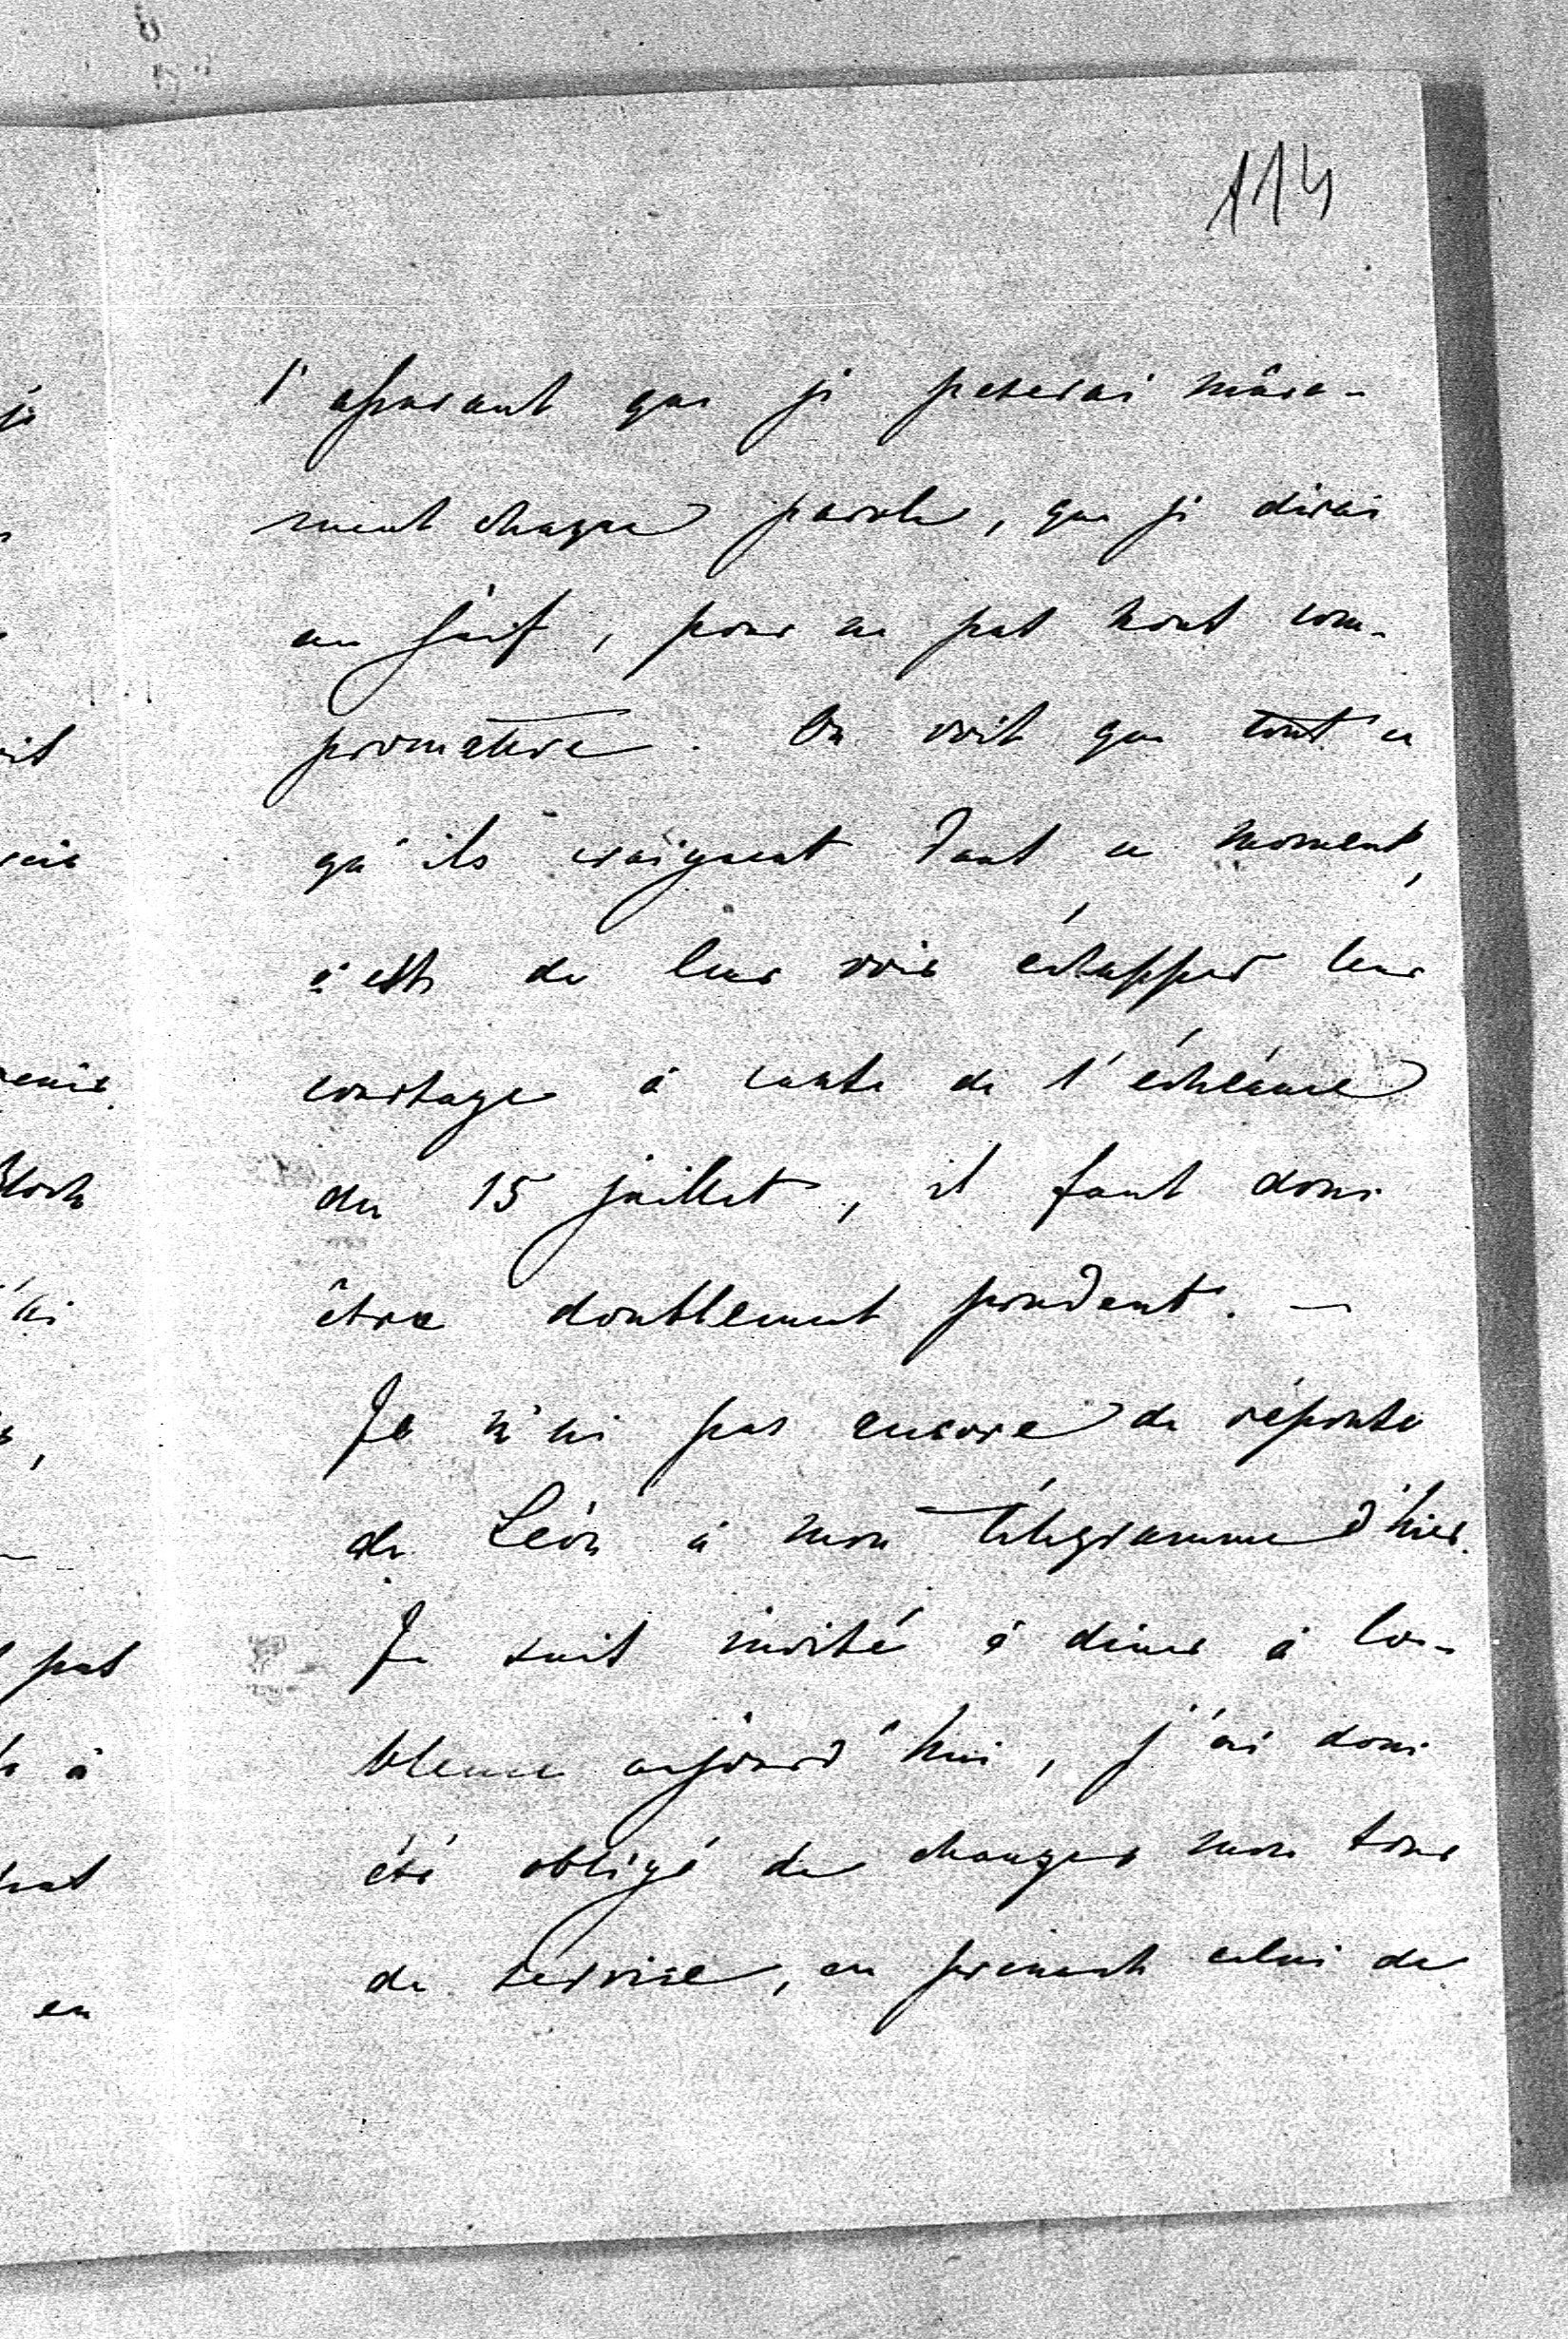 114
l'assurant que je peserai mûre-
ment chaque parole, que je dirai
au juif, pour ne pas nous com-
promettre. On voit que tout ce
qu'ils craignent dans ce moment,
c'est de leur voir échapper leur
courtage à cause de l'échéance
du 15 juillet, il faut donc
être doublement prudent. —
Je n'ai pas encore de réponse
de Léon à mon télégramme d'hier.
Je suis invité à diner à Co-
blence aujourd'hui, j'ai donc
été obligé de changer mon tour
de service, en prenant celui de